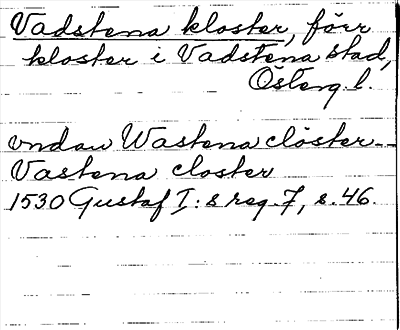 Vadstena kloster, förr
kloster i Vadstena stad,
Österg. l.
vndan Wastena clöster --
Vastena closter
1530 Gustaf I:s reg. 7, s. 46.